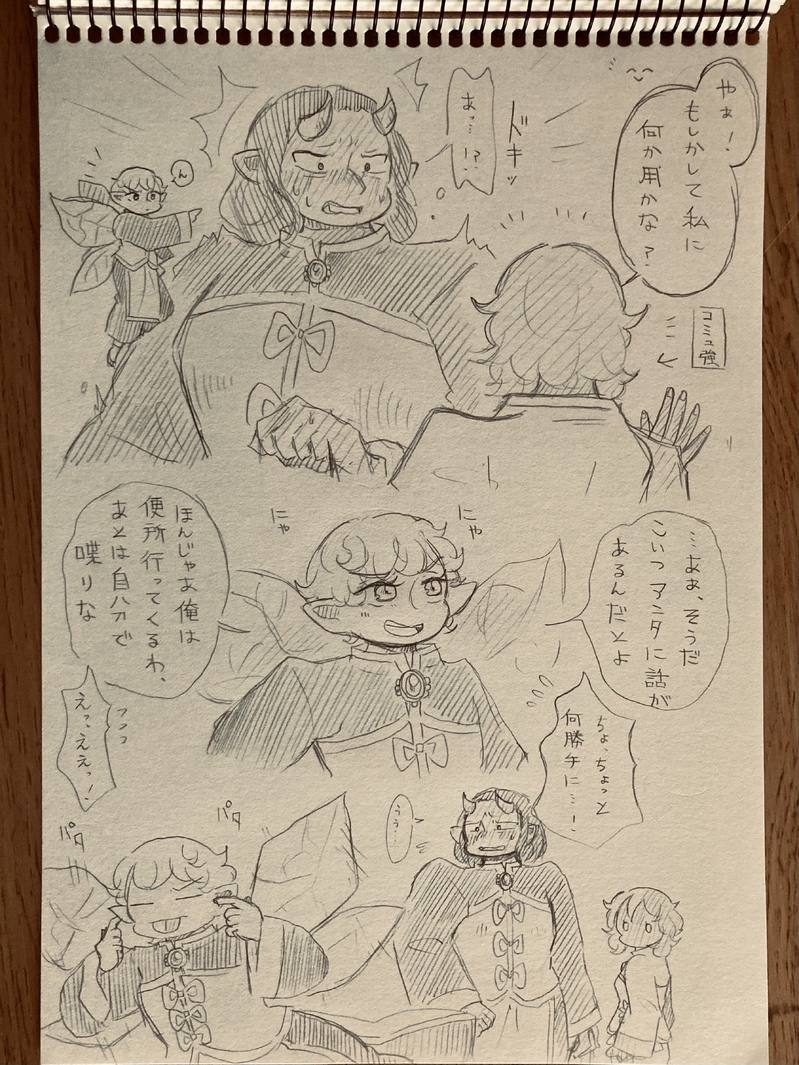 やぁ！
もしかして私に
何か用かな？
ドキッ
あっ…!?
ん
コミュ強
…あぁ、そうだ
こいつアンタに話が
あるんだとよ
にゃ
にゃ
ほんじゃあ俺は
便所行ってくるわ、
あとは自分で
喋りな
ちょっちょっと
何勝手に…！
えっええっ！
ううっ…
パタ
パタ